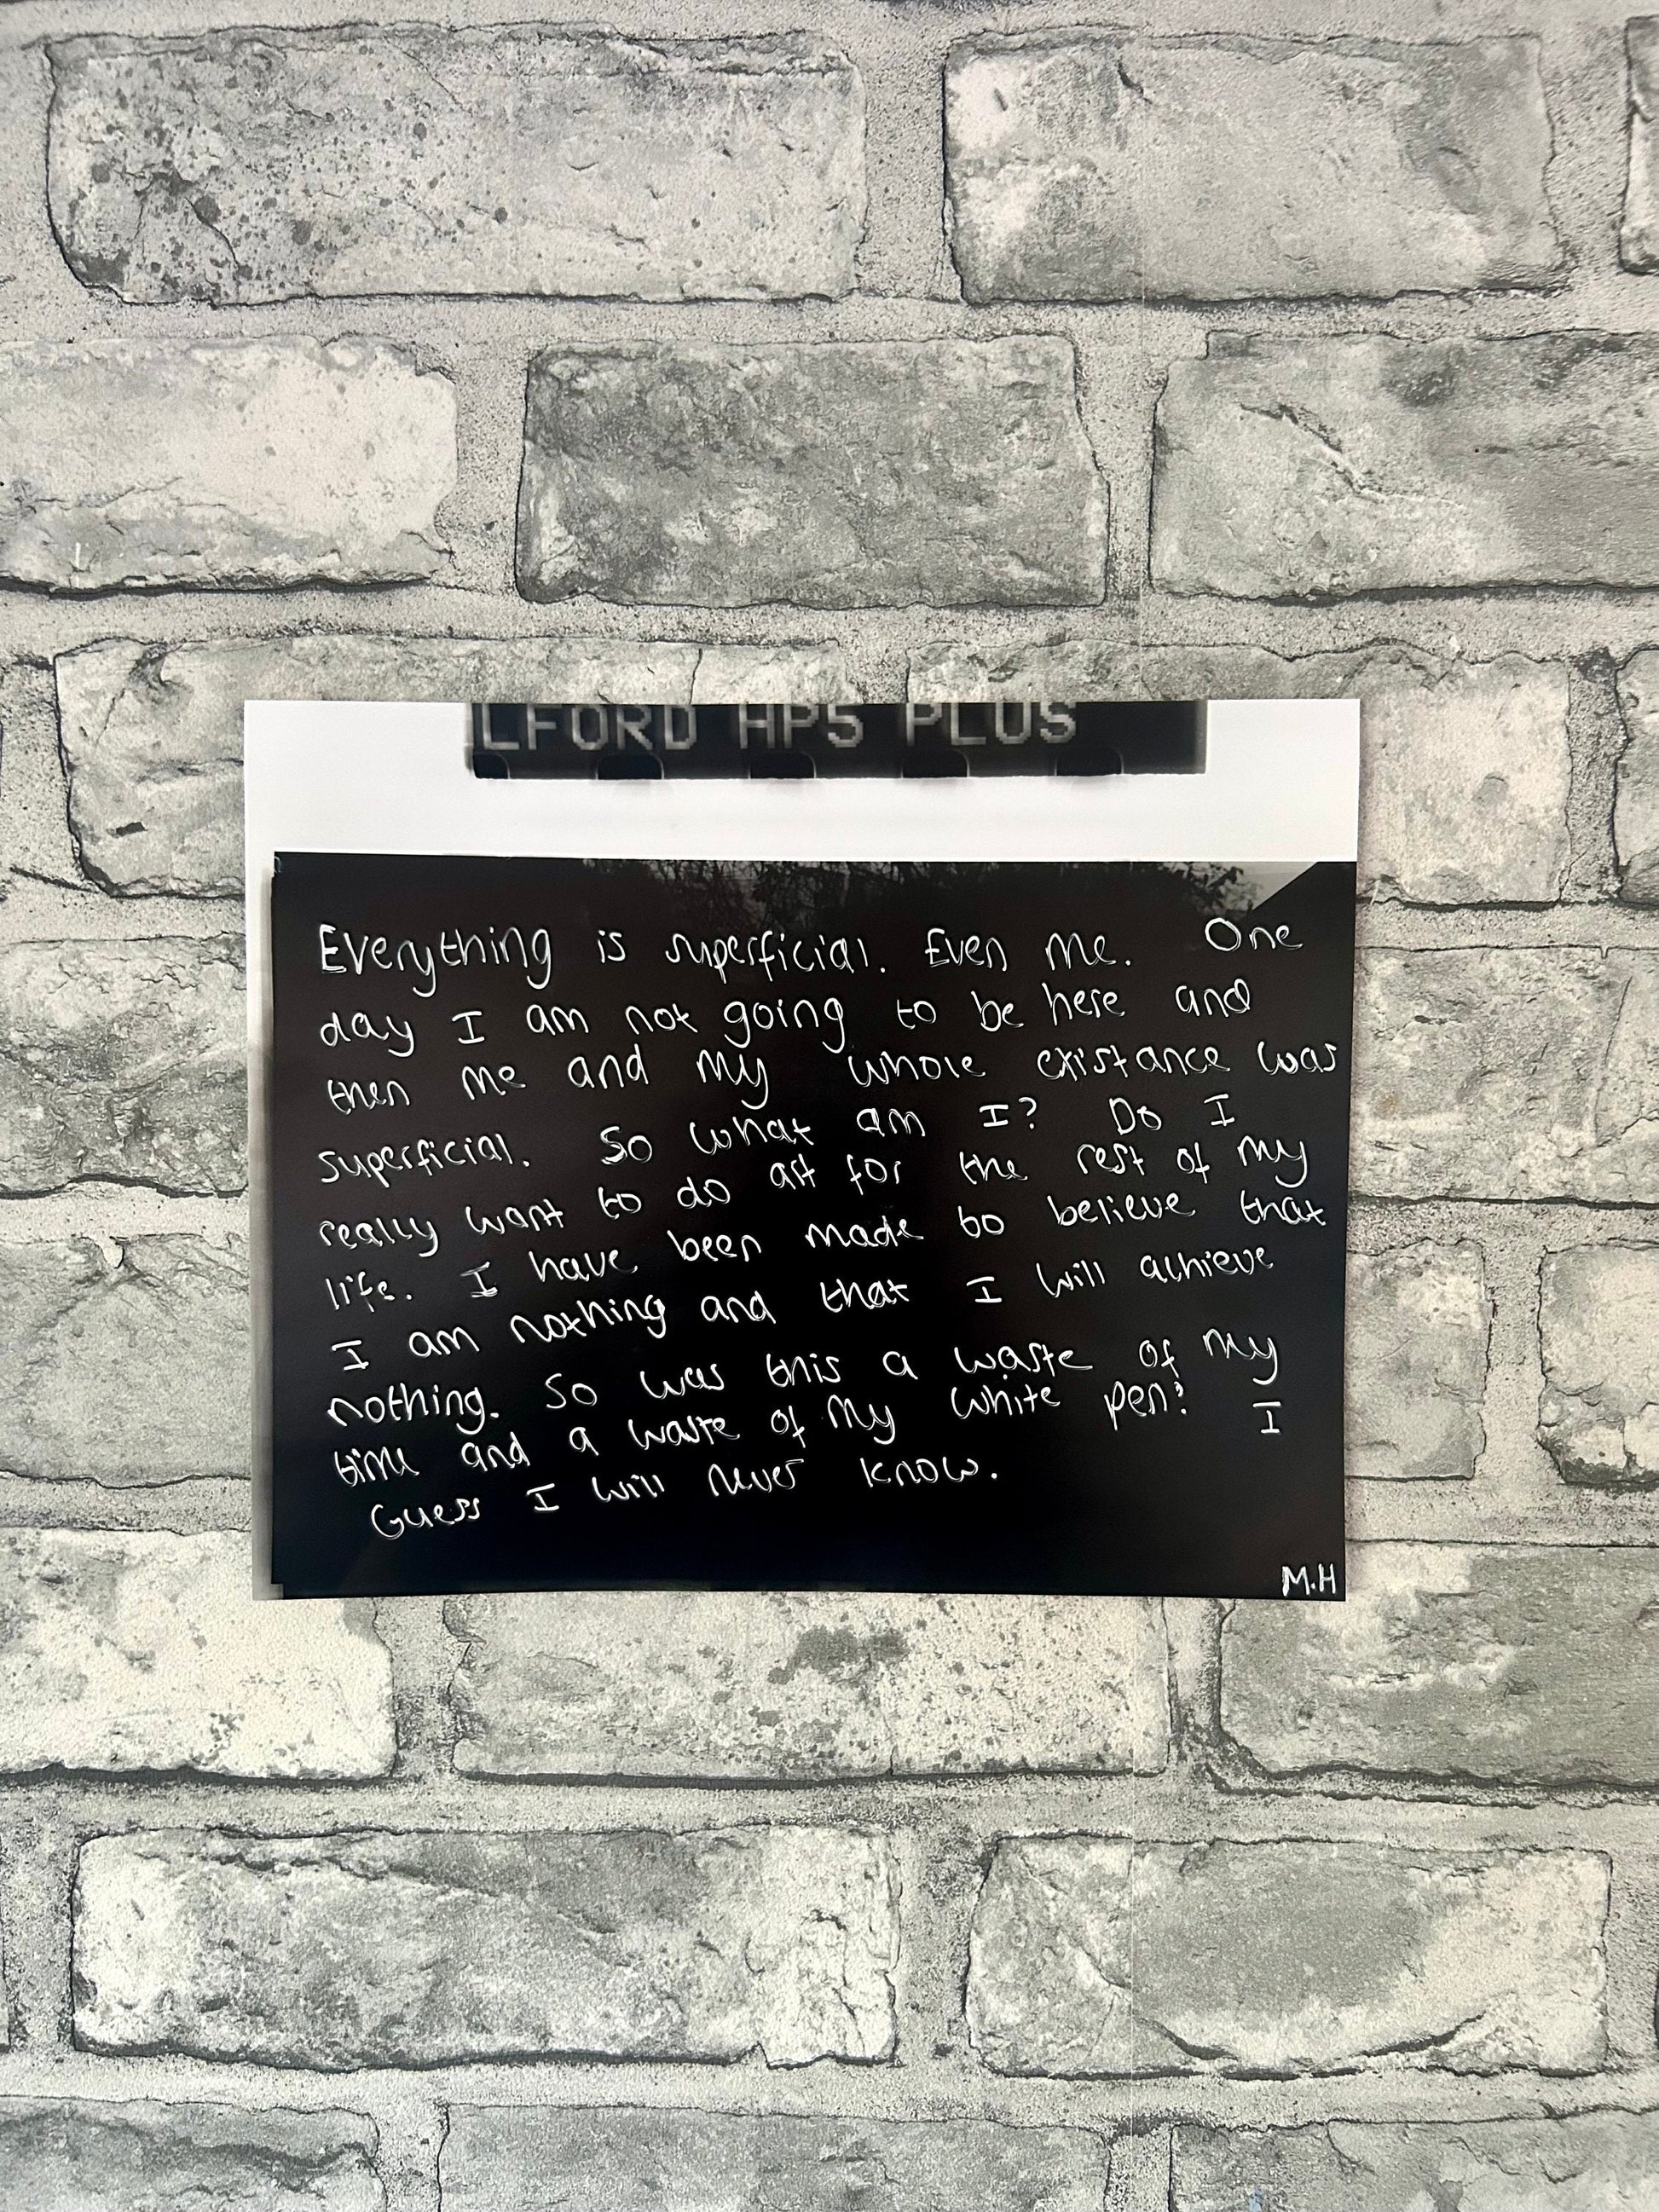 LFORD HP5 PLUS
Everything is superficial. Even me. One
day I am not going to be here and
then me and my whole existance was
superficial. So what am I? Do I
really want to do art for the rest of my
life. I have been made to believe that
I am nothing and that I will achieve
nothing. So was this a waste of my
time and a waste of my white pen? I
Guess I will never know.
M.H